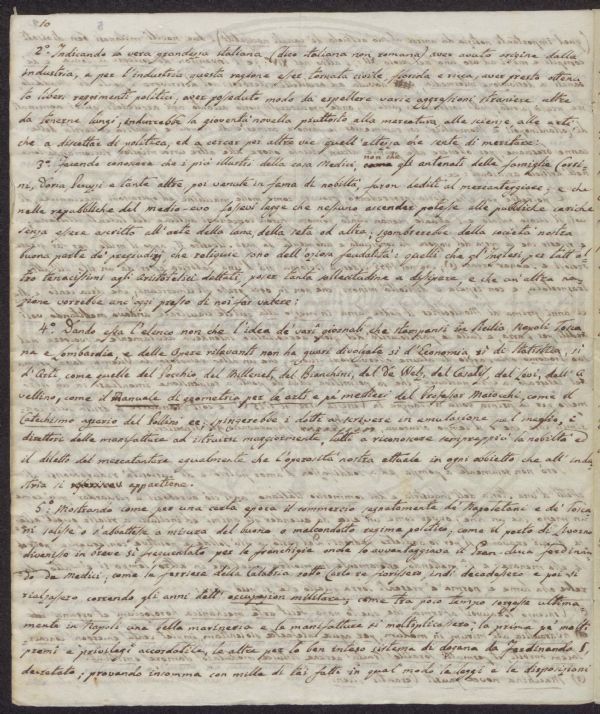 10
2.° Indicando la vera grandezza italiana (dico italiana non romana) aver avuto origine dalla
industria, e per l'industria questa regione esser tornata civile, florida e ricca, aver presto ottenu
to liberi reggimenti politici, aver posseduto modo da espellere varie aggressioni straniere altre
da tenerne lungi, indurrebbe la gioventù novella piuttosto alla mercatura alle scienze alle arti
che a discettar di politica, ed a cercar per altre vie quell'altezza che sente di meritare:
3.° Facendo conoscere che i più illustri della casa Medici, non che gli antenati delle famiglie Corsi
ni, Doria Peruzzi e tante altre, poi venute in fama di nobiltà, furon dediti al mercanteggiare; e che
nelle repubbliche del medio evo fessevi legge che nessuno ascender potesse alle pubbliche cariche
senza essere ascritto all'arte della lana della seta od altra, sgombrerebbe dalla società nostra
buona parte de' pregiudizj che reliquie sono dell'oziosa feudalità: quelli che gl'inglesi per tutt'al
tro tenacissimi agli Aristotelici dettati, poser tanta sollecitudine a disperdere, e che un'altra na
zione vorrebbe anc'oggi presso di noi far valere:
4.° Dando essa l'elenco non che l'idea de' varj giornali che stampansi in Sicilia Napoli Tosca
na e Lombardia, e delle Opere rilevanti non ha guari divolgate sì d'Economia sì di Statistica, sì
d'Arti, come quelle del Pecchio del Millenet, del Bianchini, del De Welz, del Casati, del Bosi, dell'A
vellino, come il manuale di geometria per le arti e pe' mestieri del Professor Maiocchi, come il
Catechismo agrario del Pollini ec. spingerebbe i dotti a scrivere in emulazione pel meglio, i
direttori delle manifatture ad istruirsi maggiormente, tutti a riconoscere sempreppiù la nobiltà e
il diletto del mercatantare egualmente che l'operosità nostra attuale in ogni obbietto che all'indu
stria si appartiene.
5.° Mostrando come per una certa epoca il commercio segnatamente di Napoletani e de' Tosca
ni salisse o s'abbattesse a misura del buono o malcondotto regime politico, come il porto di Livorno
divenisse in breve sì frequentato per le franchigie onde lo avvantaggiava il Gran-duca Ferdinan
do de Medici, come le ferriere della Calabria sotto Carlo 3.° fiorissero, indi decadessero e poi si
rialzassero correndo gli anni dell'occupazion militare, come tra poco tempo sorgesse ultima-
mente in Napoli una bella marineria e le manifatture si moltiplicassero; la prima pe' molti
premi e privilegi accordatile, le altre per lo ben inteso sistema di dogana da Ferdinando I.
decretato; provando insomma con mille di tai fatti in qual modo le leggi e le disposizioni